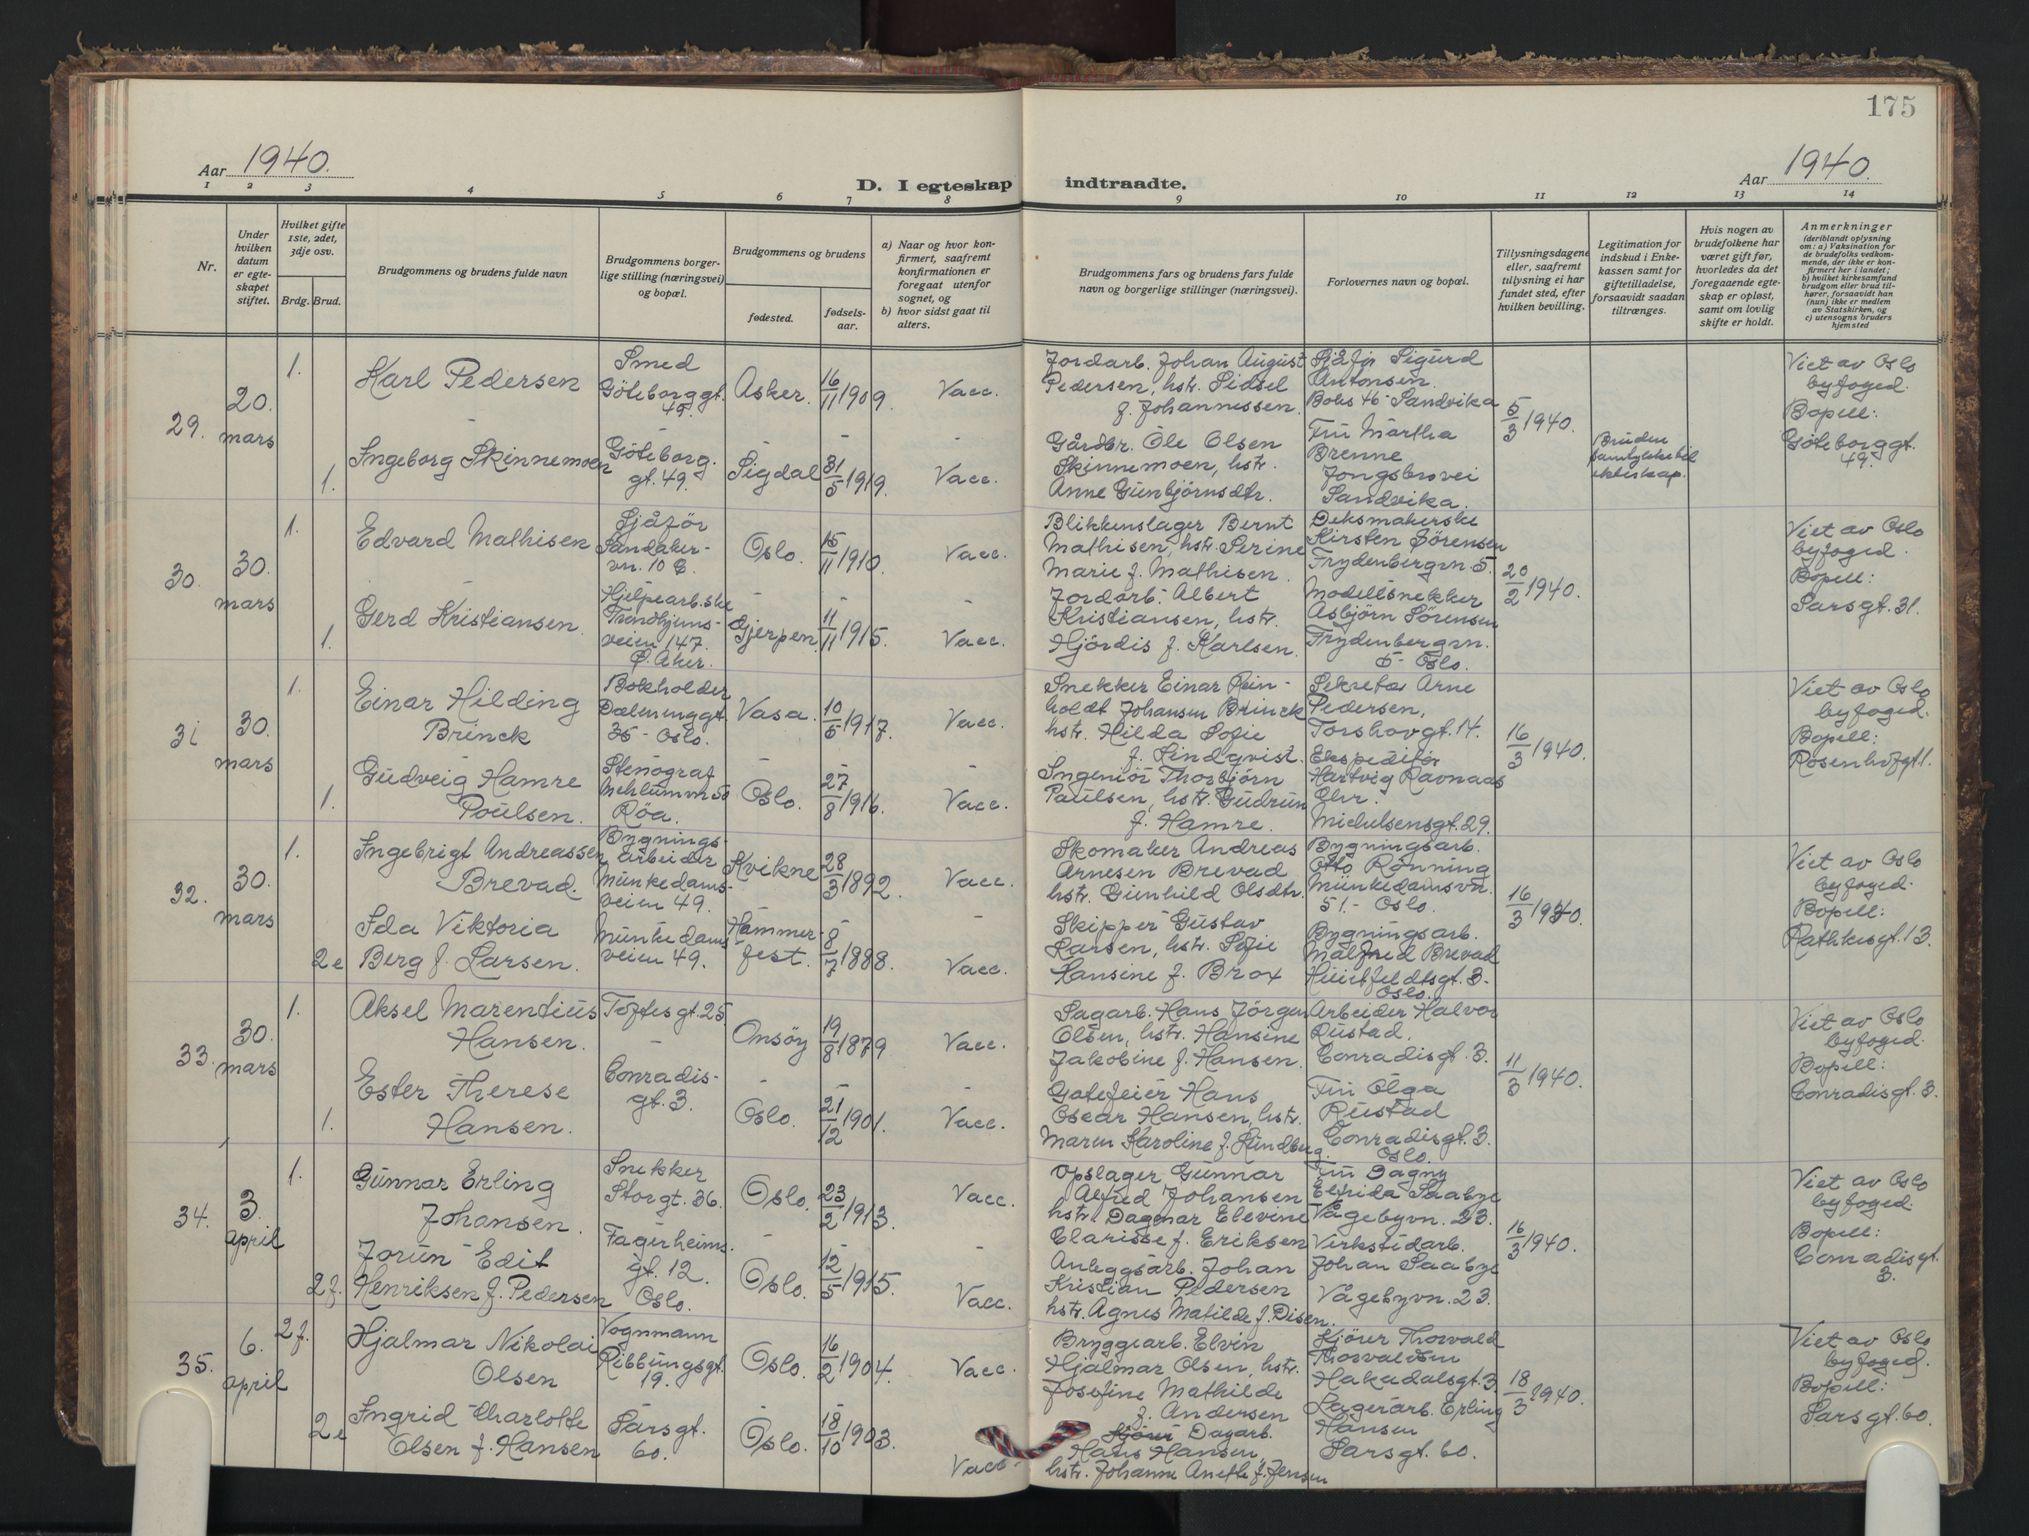 175
Aar 1940.
Aar 1940.
D. I egteskap indtraadte.
1 2 3 4 5 6 7 8 9 10 11 12 13 14
Nr.
Under hvilken datum er egte-skapet stiftet.
Hvilket gifte 1ste, 2det, 3dje osv.
Brdg. Brud.
Brudgommens og brudens fulde navn
Brudgommens borger-lige stilling (næringsvei) og bopæl.
Brudgommens og brudens
fødested.
fødsels-aar.
a) Naar og hvor kon-firmert, saafremt konfirmationen er foregaat utenfor sognet, og
b) hvor sidst gaat til alters.
Brudgommens fars og brudens fars fulde navn og borgerlige stillinger (næringsvei).
Forlovernes navn og bopæl.
Tillysningsdagene eller, saafremt tillysning ei har fundet sted, efter hvilken bevilling.
Legitimation for indskud i Enke-kassen samt for giftetilladelse, forsaavidt saadan tiltrænges.
Hvis nogen av brudefolkene har været gift før, hvorledes da det foregaaende egte-skap er opløst, samt om lovlig skifte er holdt.
Anmerkninger
(deriblandt oplysning om: a) Vaksination for de brudefolks vedkom-mende, der ikke er kon-firmert her i landet; b) hvilket kirkesamfund brudgom eller brud til-hører, forsaavidt han (hun) ikke er medlem av Statskirken, og c) utensogns bruders hjemsted
29.
20. mars
1.
Karl Pedersen
Smed
Göteborggt. 49.
Asker.
16/11 1909.
Vacc.
Jordarb. Johan August
Pedersen, hstr. Sidsel
f. Johannessen.
Sjåför Sigurd
Antonsen.
Boks 46 - Sandvika
5/3 1940.
Viet av Oslo
byfoged.
Bopell:
Göteborggt.
49.
1.
Ingeborg Skinnemoen
Göteborg.
gt. 49.
Sigdal
31/5 1919.
Vacc.
Gårdbr. Ole Olsen
Skinnemoen, hstr.
Anne Gunbjörnsdtr.
Fru Martha
Brenne
Jongsbrovei
Sandvika.
Bruden
samtykke til
ekteskap.
30.
30. mars
1.
Edvard Mathisen
Sjåför
Sandaker-
vn. 10 C.
Oslo.
15/11 1910.
Vacc.
Blikkenslager Bernt
Mathisen, hstr. Serine
Marie f. Mathisen.
Kirsten Sørensen
Frydenbergvn 5.
20/2 1940.
Viet av Oslo
byfoged.
Bopell:
Sarsgt. 31.
1.
Gerd Kristiansen.
Hjelpearb.ske
Trondhjems-
veien 147.
Ö. Aker.
Gjerpen
11/11 1915.
Vacc.
Jordarb. Albert
Kristiansen, hstr.
Hjördis f. Karlsen.
Modellsnekker
Asbjørn Sörensen
Frydenbergvn.
5 - Oslo.
31
30. mars
1.
Einar Hilding
Brinck
Bokholder
Dælenenggt.
35 - Oslo.
Vasa.
10/5 1917.
Vacc.
Snekker Einar Rein-
holdt Johansen Brinck
hstr. Hilda Sofie
f. Lindqvist.
Sekretær Arne
Pedersen,
Torshovgt. 14.
16/3 1940.
Viet av Oslo
byfoged.
Bopell:
Rosenhofgt 1.
1.
Gudveig Hamre
Poulsen.
Stenograf
Mehlumvn 50
Röa.
Oslo.
27/8 1916.
Vacc.
Ingeniör Thorbjörn
Paulsen, hstr. Gudrun
f. Hamre.
Ekspeditör
Hartvig Ravnaas
Chr.
Michelsensgt. 29.
32.
30. mars
1.
Ingebrigt Andreassen
Brevad.
Bygnings-
arbeider
Munkedams-
veien 49.
Kvikne
28/3 1892.
Vacc.
Skomaker Andreas
Arnesen Brevad
hstr. Gunhild Olsdtr.
Bygningsarb.
Otto Rönning
Munkedamsvn.
51. - Oslo.
16/3 1940.
Viet av Oslo
byfoged.
Bopell:
Rathkesgt. 13.
2e
Ida Viktoria
Berg f. Larsen.
Munkedams
veien 49.
Hammer-
fest.
8/7 1888.
Vacc.
Skipper Gustav
Larsen, hstr. Sofie
Hansine f. Brox
Bygningsarb.
Malfred Brevad
Huitfeldtsgt. 3.
Oslo.
33.
30. mars
1.
Aksel Marentius
Hansen.
Toftesgt. 25.
Onsöy
19/8 1879
Vacc.
Sagarb. Hans Jörgen
Olsen, hstr. Hansine
Jakobine f. Hansen.
Arbeider Halvor
Rustad.
Conradisgt. 3.
11/3 1940.
Viet av Oslo
byfoged.
Bopell:
Conradisgt. 3.
1.
Ester Therese
Hansen.
Conradis-
gt. 3.
Oslo.
21/12 1901.
Vacc.
Gatefeier Hans
Oscar Hansen, hstr.
Maren Karoline f. Lundberg.
Fru Olga
Rustad
Conradisgt. 3.
Oslo.
34.
3. april
1.
Gunnar Erling
Johansen.
Snekker
Storgt. 36.
Oslo.
23/2 1913.
Vacc.
Opslager Gunnar
Alfred Johansen
hstr. Dagmar Elevine
Clarisse f. Eriksen
Fru Dagny
Elfrida Saabye
Vågebyvn. 23.
16/3 1940.
Viet av Oslo
byfoged.
Bopell:
Conradisgt.
3.
2f.
Jorun Edit
Henriksen f. Pedersen
Fagerheims.
gt. 12.
Oslo.
Oslo.
12/5 1915.
Vacc.
Anleggsarb. Johan
Kristian Pedersen
hstr. Agnes Matilde f. Disen.
Verkstedarb.
Johan Saabye
Vågebyvn. 23.
35.
6. april
2f.
Hjalmar Nikolai
Olsen
Vognmann
Ribbungsgt.
19.
Oslo.
16/2 1904.
Vacc.
Bryggearb. Elvin
Hjalmar Olsen, hstr.
Josefine Mathilde
f. Andersen
Kjörer Thorvald
Thorvaldsen
Hakadalsgt. 3
18/3 1940.
Viet av Oslo
byfoged.
Bopell:
Sarsgt. 60.
2e
Ingrid Charlotte
Olsen f. Hansen
Sarsgt.
60.
Oslo.
18/10 1903.
Vacc.
Dagarb.
Hans Hansen
hstr. Johanne Anethe f. Jensen
Lagerarb. Erling
Hansen
Sarsgt. 60.